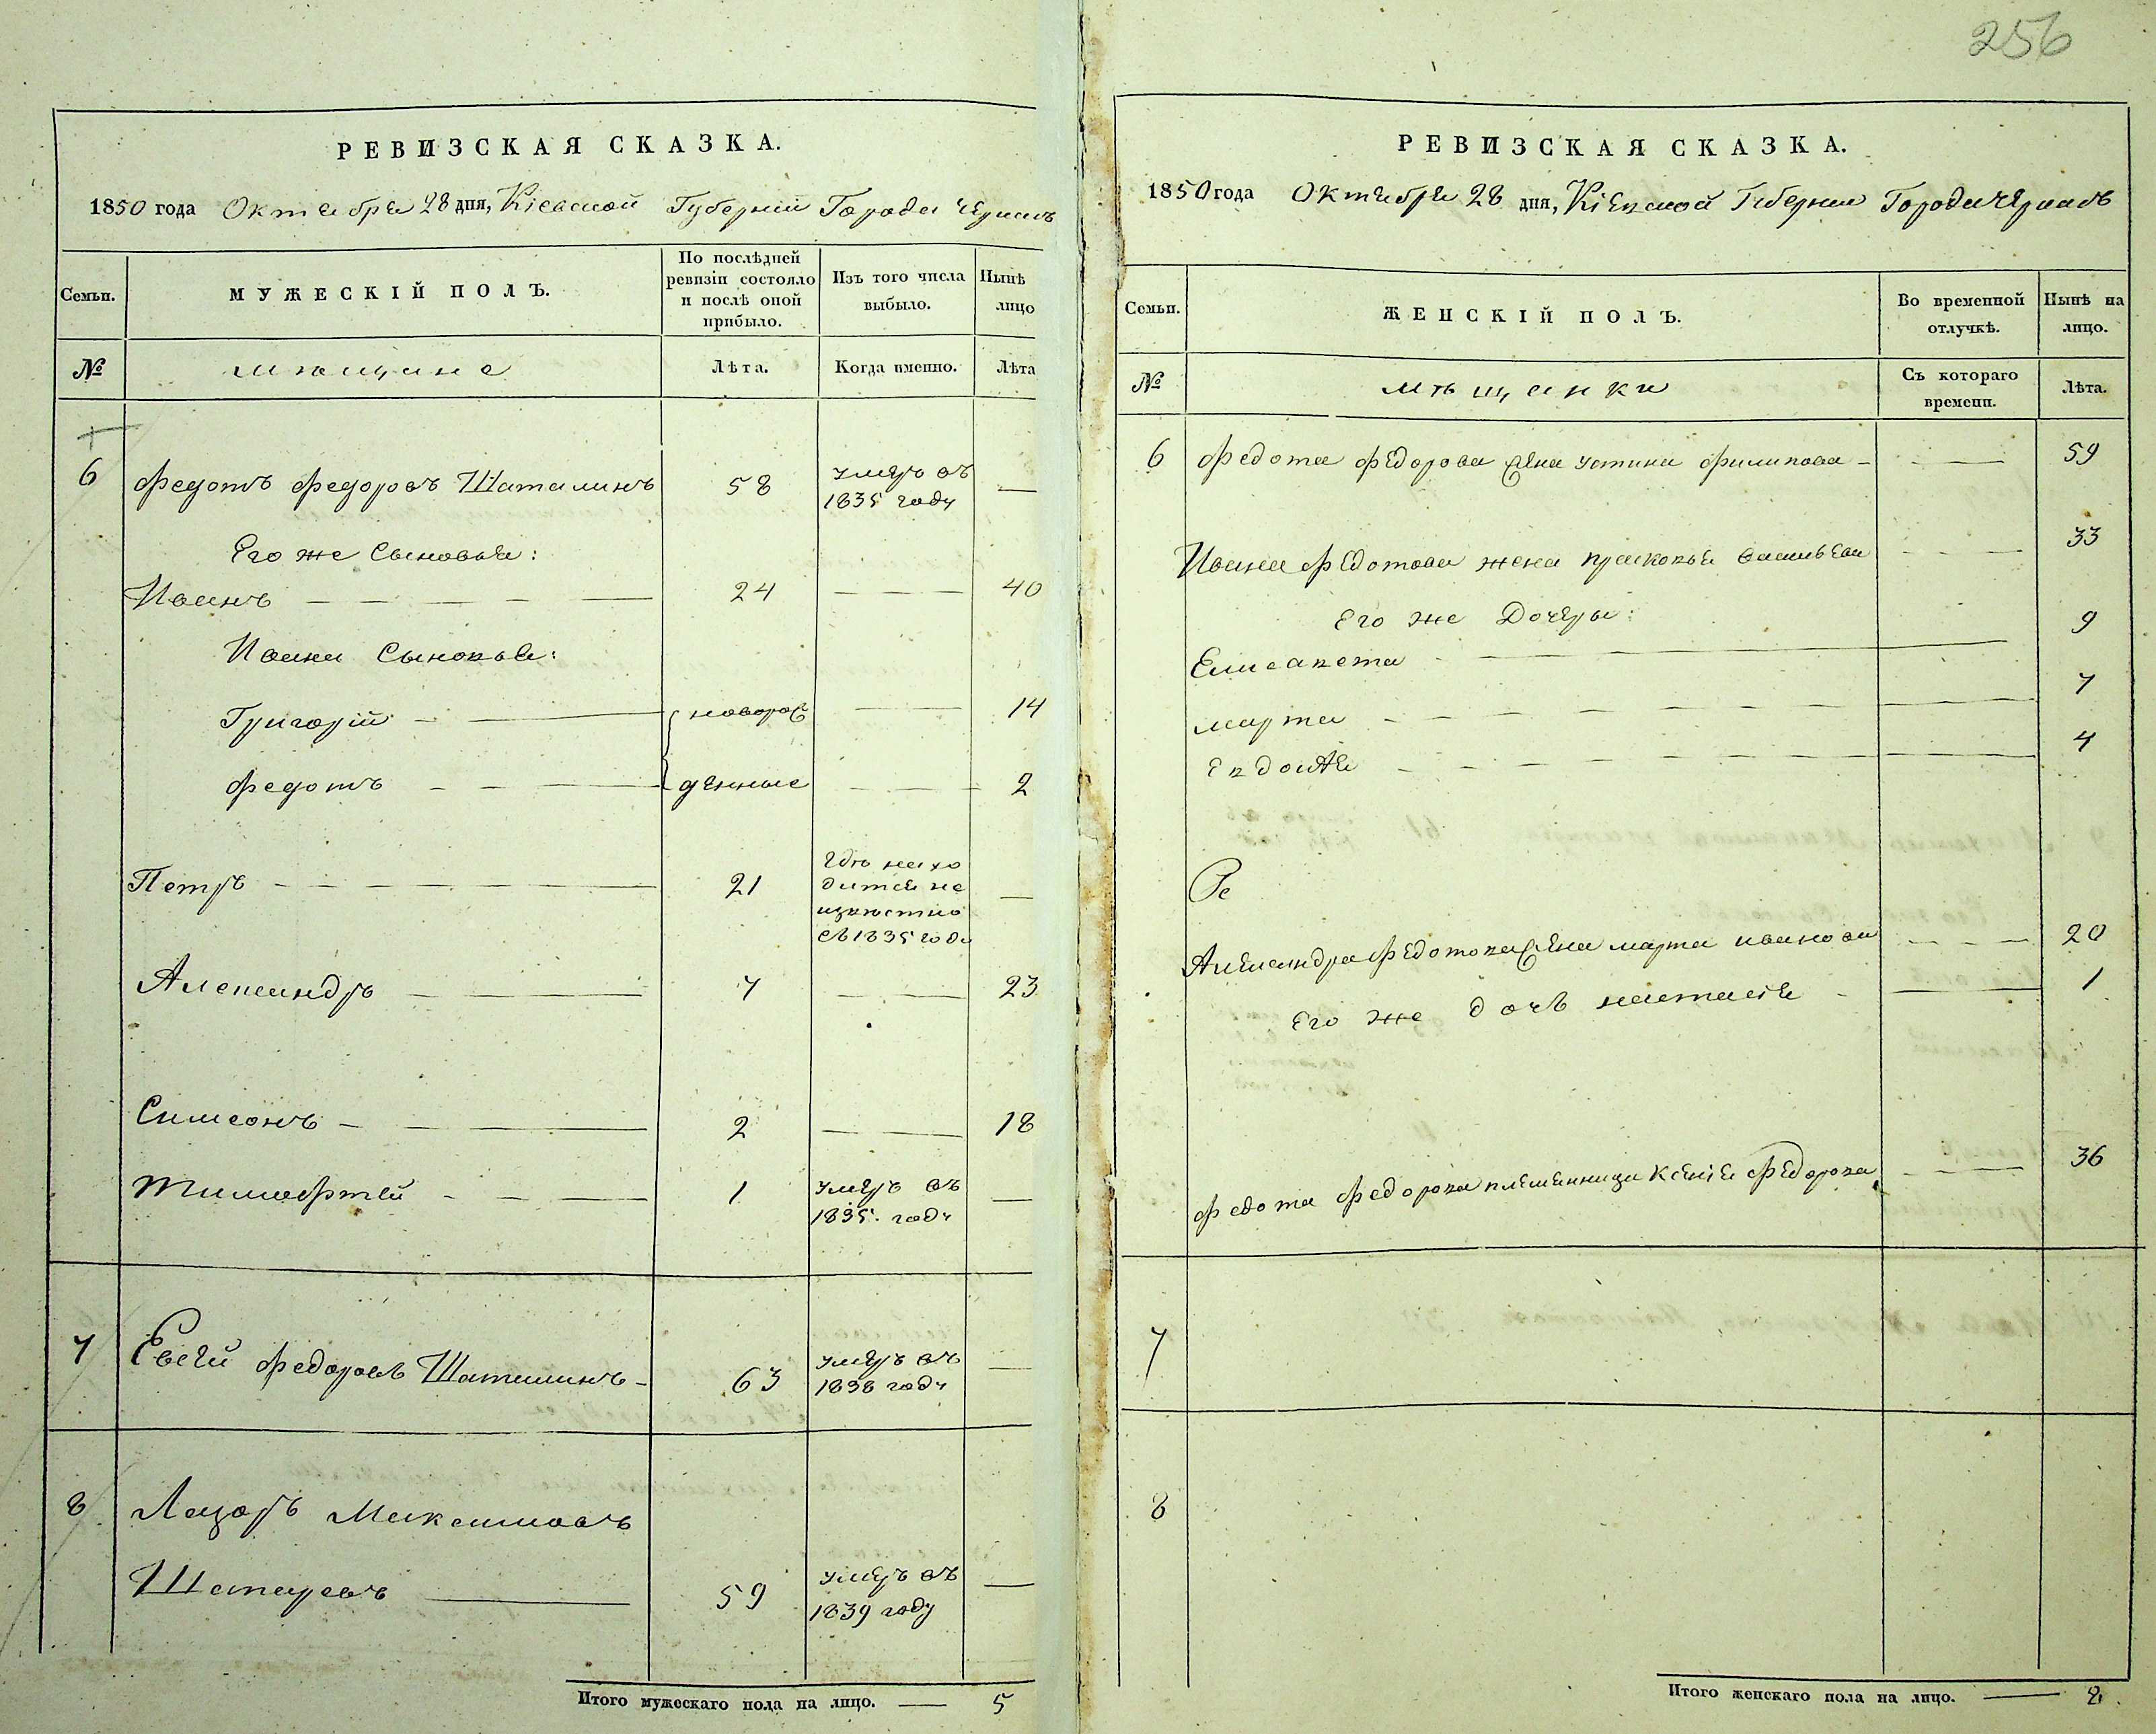 256
РЕВИЗСКАЯ СКАЗКА.
1850 года Октября 28 дня, Кіевской Губерніи Города Черкасъ
Семьи.
МУЖЕСКІЙ ПОЛЪ.
По послѣдней ревизіи состояло и послѣ оной прибыло.
Изъ того числа выбыло.
Нынѣ лицо
№
мѣщане
Лѣта.
Когда именно.
Лѣта
6 Федотъ Федоровъ Шаталинъ 58 умеръ въ 1835 году —
Его же Сыновья:
Иванъ — — — — — 24 — — — 40
Ивана Сыновья:
Григорій — — новорож — — 14
Федотъ — — — денные — — — 2
Петръ — — — — — — 21 гдѣ нахо
дится не
извѣстно
съ 1835 года —
Александръ — — 7 — — 23
Симеонъ — — — 2 — — 18
Тимофтей — — — 1 умеръ въ 1835. году —
7 Евсей Федоровъ Шаталинъ — 63 умеръ въ 1838 году —
8 Лазарь Максимовъ
Шапаревъ — 59 умеръ въ 1839 году —
Итого мужескаго пола на лицо. — 5
РЕВИЗСКАЯ СКАЗКА.
1850 года Октября 28 дня, Кіевской Губерніи Города Черкасъ
Семьи.
ЖЕНСКІЙ ПОЛЪ.
Во временной отлучкѣ.
Нынѣ на лицо.
№
мѣщанки
Съ котораго времени.
Лѣта.
6 Федота Федорова жена Устина Филипова — — — 59
Ивана Федотова жена Прасковья Васильева — — — 33
Его же Дочеры:
Елисавета — — — 9
Марта — — — — — — — — 7
Евдокія — — — — — — — — 4
Ре
Александра Федотова жена Марта Иванова — — — 20
Его же дочь Настасія — — 1
Федота Федорова племенница Ксенія Федорова — — 36
7
8
Итого женскаго пола на лицо. — 8.